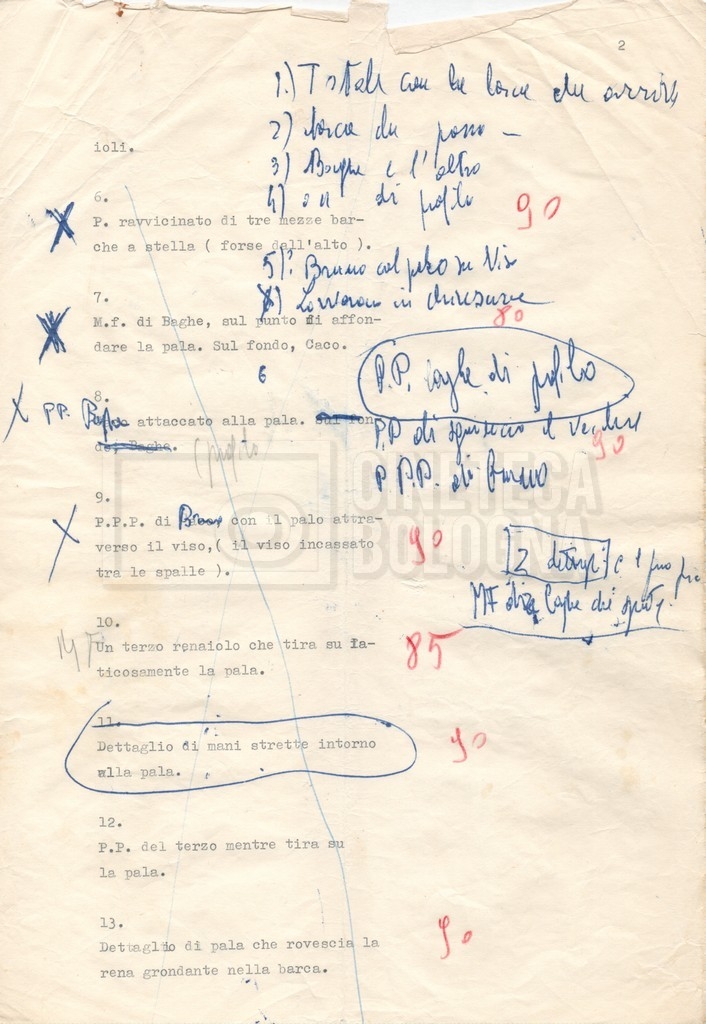 2
1.) Totale con le barche che arriva
2) barca che passa —
3) Baghe e l'altro
4) di profilo
90
ioli.
6.
P. ravvicinato di tre mezze bar-
che a stella ( forse dall'alto ).
5) Bruno col palo su viso
6) Lavorano in
7.
M.f. di Baghe, sul punto di affon-
80
dare la pala. Sul fondo, Caco.
6
P.P. Baghe di profilo
8.
PP. attaccato alla pala. Sul fon-
P.P. di
90
do, Baghe.
(profilo
P.P.P. di Bruno
9.
P.P.P. di Bruno con il palo attra-
verso il viso,( il viso incassato
90
tra le spalle ).
CINETECA
BOLOGNA
2 e 1
MF Baghe che
10.
M F Un terzo renaiolo che tira su fa-
85
ticosamente la pala.
11.
Dettaglio di mani strette intorno
90
alla pala.
12.
P.P. del terzo mentre tira su
la pala.
13.
Dettaglio di pala che rovescia la
90
rena grondante nella barca.